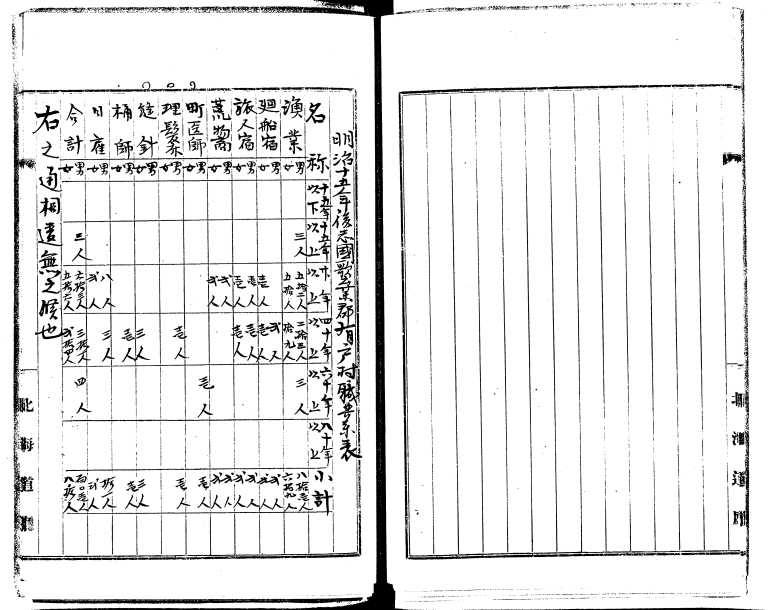 明治十五年後志國歌棄郡有戸村職業表
名称 十五年以下 十五年以上 廿年以上 四十年以上 六十年以上 八十年以上 小計
漁業 男 三人 五拾二人 二拾三人 三人 八拾壱人
女 五拾人 拾九人 六拾九人
廻船宿 男 弐人 弐人
女 壱人 壱人 弐人
旅人宿 男 壱人 壱人 弐人
女 壱人 壱人 弐人
荒物商 男 弐人 弐人
女 弐人 弐人
町医師 男 壱人 壱人
女
理髪業 男 壱人 壱人
女
縫針 男
女 三人 三人
桶師 男 壱人 壱人
女
日雇 男 八人 三人 拾一人
女 弐人 弐人
合計 男 三人 六拾三人 三拾一人 四人 百〇壱人
女 五拾六人 弐拾四人 八拾人
右之通相違無之候也
北海道
北海道